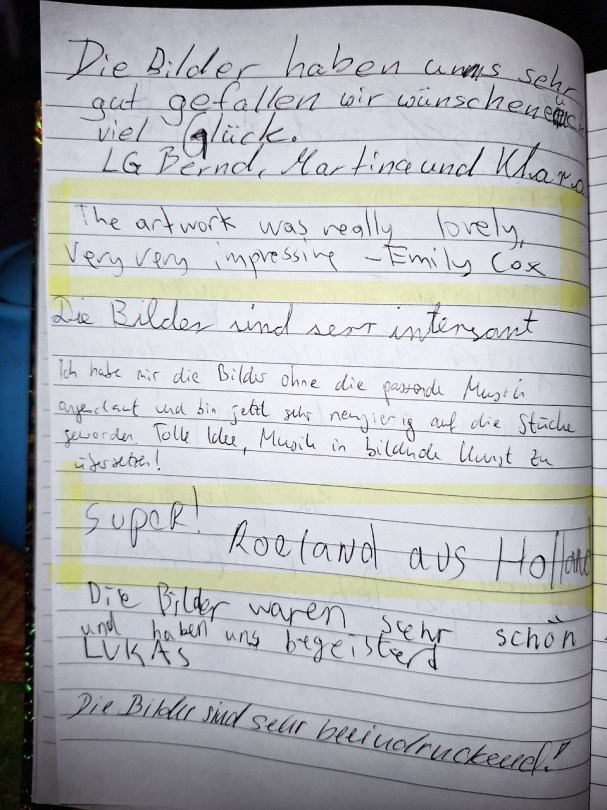 Die Bilder haben uns sehr
gut gefallen wir wünschen euch
viel Glück.
LG Bernd, Martina und Khara
The artwork was really lovely,
Very very impressive - Emily Cox
Die Bilder sind serr intersant
Ich habe mir die Bilder ohne die passende Musik
angeschaut und bin jetzt sehr neugierig auf die Stücke
geworden. Tolle Idee, Musik in bildende Kunst zu
übersetzen!
SUPER! Roeland aus Holland
Die Bilder waren sehr schön
und haben uns begeisterd
LUKAS
Die Bilder sind sehr beeindruckend!